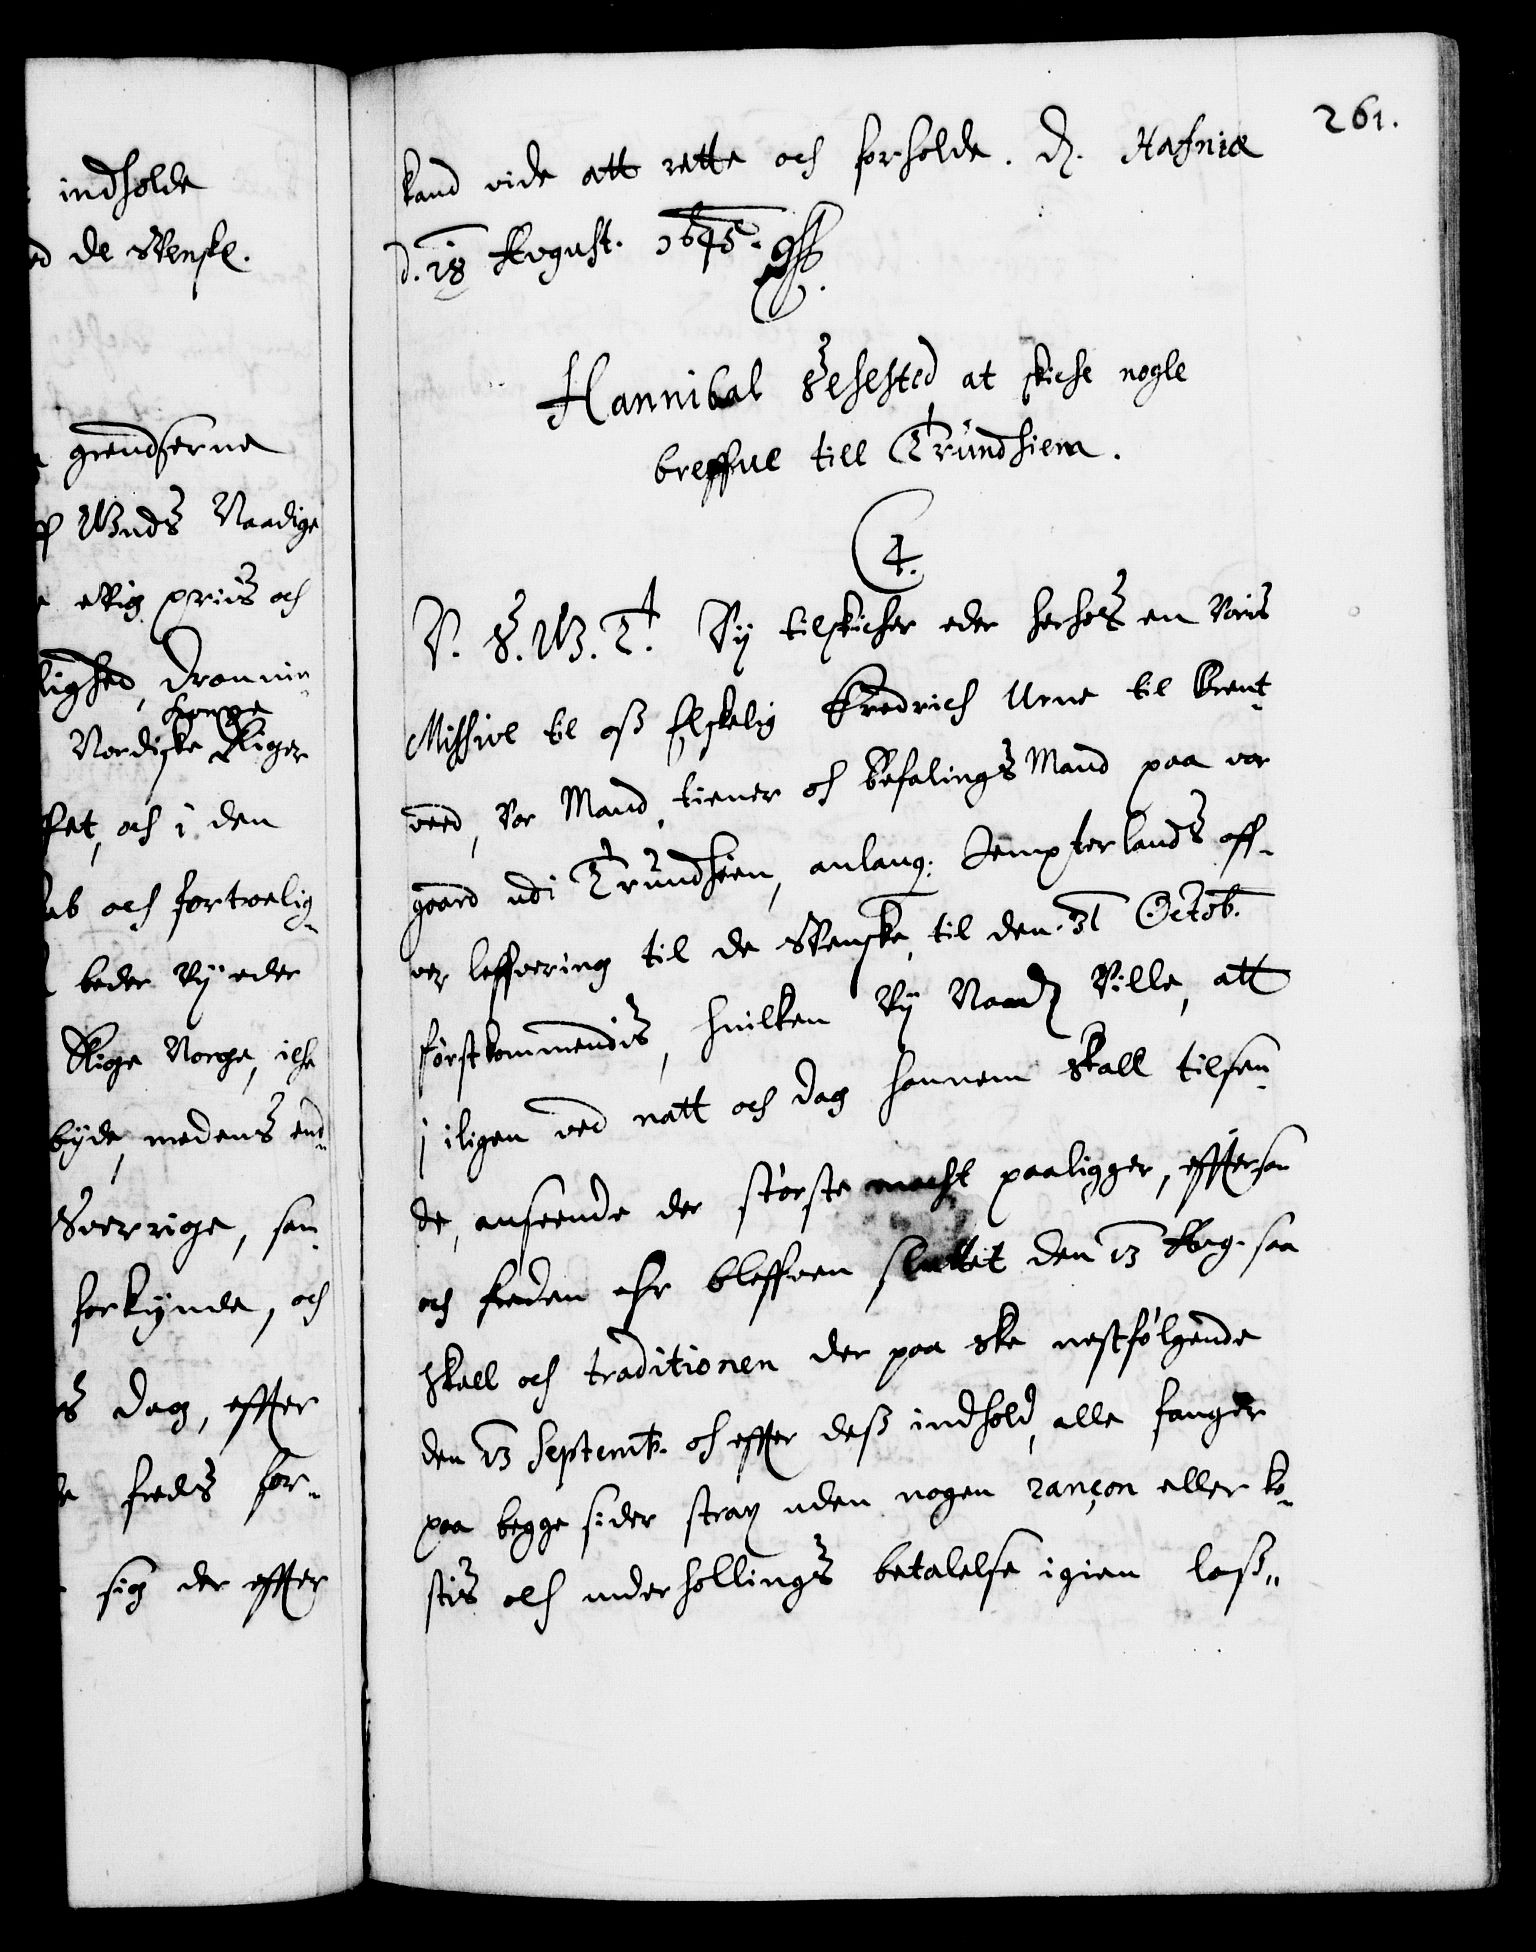 indholde
de Svenske.
grendserne
Wnds Naadige
evig priis och
lighed, dronnin¬
Konge
Nordiske Riger
och i den
och fortroelig¬
beder Vÿ eder
Rige Norge, iche
medens end¬
Sverrige, som¬
forkÿnde, och
dag, effter
freds for¬
sig der effter
261.
kand vide att rette och forholde. Dz. Hafniæ
d. 18 August. 1645.
Hannibal Sehested at skiche nogle
breffue till Trundhiem.
C4.
V. S. W. T. Vÿ tilskicher eder herhos en Voris
Missive til oss Elskelig Fredrich Urne til Brent¬
ved, Vor Mand, tiener och Befalings Mand paa vor
gaard udi Trundhiem, anlang: Jempterlands off¬
ver leffvering til de Svenske, til den 31 Octob.
førstkommendis, huilken Vÿ Naadz Ville, att
i iligen ved natt och dag hannem skall tilsen¬
de, anseende der største macht paaligger, efftersom
och freden ehr bleffven sluttet den 13 Aug. saa
skall och traditionen der paa ske nestfølgende
den 13 Septemb. och effter dess indhold, alle fanger
paa begge sider strax uden nogen rançon eller ko¬
stis och underhollings betalelse igien lass¬